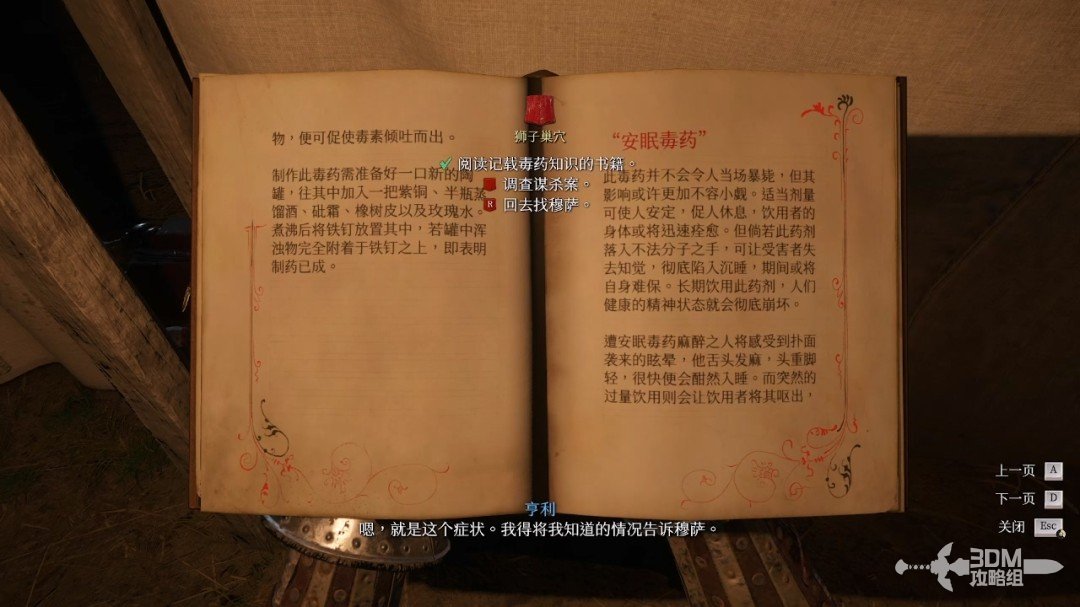 物，便可促使毒素倾吐而出。
制作此毒药需准备好一口新的陶
罐，往其中加入一把紫铜、半瓶蒸
馏酒、砒霜、橡树皮以及玫瑰水。
煮沸后将铁钉放置其中，若罐中浑
浊物完全附着于铁钉之上，即表明
制药已成。
狮子巢穴
阅读记载毒药知识的书籍。
调查谋杀案。
R
回去找穆萨。
“安眠毒药”
此毒药并不会令人当场暴毙，但其
影响或许更加不容小觑。适当剂量
可使人安定，促人休息，饮用者的
身体或将迅速痊愈。但倘若此药剂
落入不法分子之手，可让受害者失
去知觉，彻底陷入沉睡，期间或将
自身难保。长期饮用此药剂，人们
健康的精神状态就会彻底崩坏。
遭安眠毒药麻醉之人将感受到扑面
袭来的眩晕，他舌头发麻，头重脚
轻，很快便会酣然入睡。而突然的
过量饮用则会让饮用者将其呕出，
上一页 A
下一页 D
关闭 Esc
亨利
嗯，就是这个症状。我得将我知道的情况告诉穆萨。
3DM
攻略组